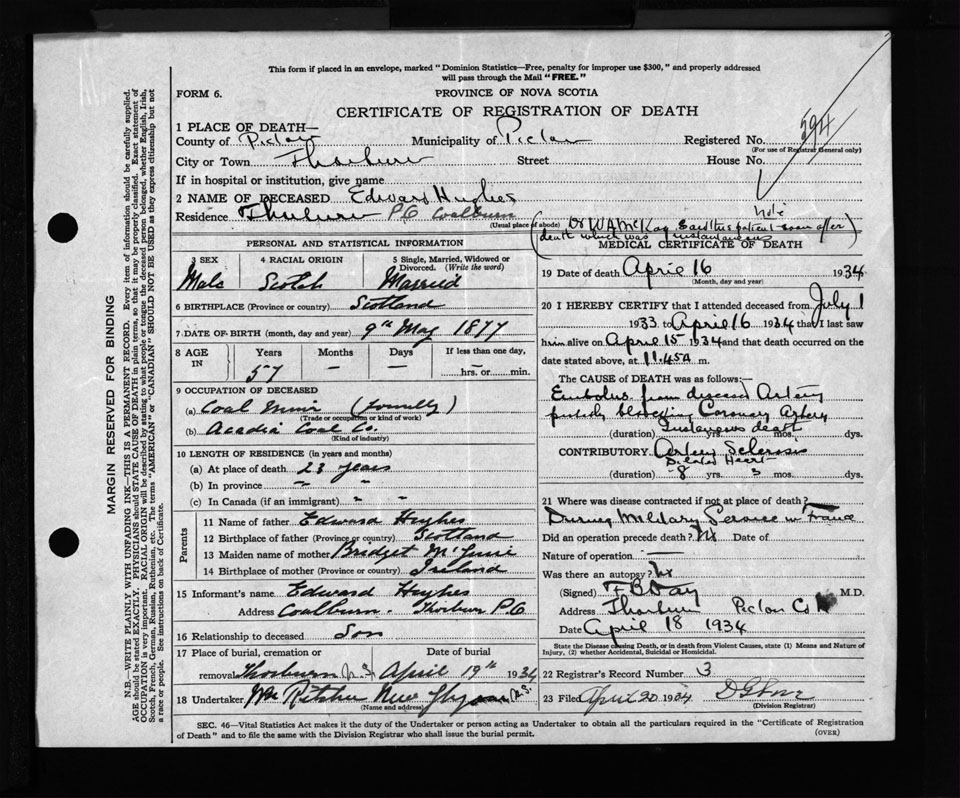 This form if placed in an envelope, marked "Dominion Statistics—Free, penalty for improper use $300," and properly addressed
will pass through the Mail "FREE."
FORM 6.
PROVINCE OF NOVA SCOTIA
CERTIFICATE OF REGISTRATION OF DEATH
1 PLACE OF DEATH—
County of Pictou Municipality of Pictou Registered No. 594
(For use of Registrar General only)
City or Town Thorburn Street House No.
If in hospital or institution, give name
2 NAME OF DECEASED Edward Hughes
Residence Thorburn P.O. Coalburn
(Usual place of abode)
Note
(Dr W A McKay said this patient soon after
death which was instantaneous)
MARGIN RESERVED FOR BINDING
N.B.—WRITE PLAINLY WITH UNFADING INK—THIS IS A PERMANENT RECORD. Every item of information should be carefully supplied.
AGE should be stated EXACTLY. PHYSICIANS should STATE CAUSE OF DEATH in plain terms, so that it may be properly classified. Exact statement of
OCCUPATION is very important. RACIAL ORIGIN will be described by stating to what people or tongue the deceased person belonged, whether English, Irish,
Scotch, French, German, Russian, Ruthenian, etc. The terms "AMERICAN" or "CANADIAN" SHOULD NOT BE USED as they express citizenship but not
a race or people. See instructions on back of Certificate.
PERSONAL AND STATISTICAL INFORMATION
3 SEX
Male
4 RACIAL ORIGIN
Scotch
5 Single, Married, Widowed or
Divorced. (Write the word)
Married
6 BIRTHPLACE (Province or country) Scotland
7 DATE OF BIRTH (month, day and year) 9th May 1877
8 AGE
IN
Years
57
Months
—
Days
—
If less than one day,
hrs. or min.
9 OCCUPATION OF DECEASED
(a) Coal Miner (formerly)
(Trade or occupation or kind of work)
(b) Acadia Coal Co.
(Kind of industry)
10 LENGTH OF RESIDENCE (in years and months)
(a) At place of death 23 years
(b) In province " "
(c) In Canada (if an immigrant) " "
Parents
11 Name of father Edward Hughes
12 Birthplace of father (Province or country) Scotland
13 Maiden name of mother Bridget
14 Birthplace of mother (Province or country) Ireland
15 Informant's name Edward Hughes
Address Coalburn. Thorburn P.O
16 Relationship to deceased Son
17 Place of burial, cremation or Date of burial
removal Thorburn N.S April 19th 1934
18 Undertaker Wm Ritchie New Glasgow N.S.
(Name and address)
MEDICAL CERTIFICATE OF DEATH
19 Date of death April 16 1934
(Month, day and year)
20 I HEREBY CERTIFY that I attended deceased from July 1
1933 to April 16 1934 that I last saw
him alive on April 15 1934 and that death occurred on the
date stated above, at 11.45 a m.
The CAUSE OF DEATH was as follows:—
Embolus from diseased Artery
blocking Coronary Artery
Instantaneous death
(duration) yrs. mos. dys.
CONTRIBUTORY Artery Sclerosis
Dilated Heart
(duration) 8 yrs. 3 mos. dys.
21 Where was disease contracted if not at place of death?
During Military Service in France
Did an operation precede death? No Date of
Nature of operation —
Was there an autopsy? No
(Signed) F B Day M.D.
Address Thorburn Pictou Co
Date April 18 1934
State the Disease causing Death, or in death from Violent Causes, state (1) Means and Nature of
Injury, (2) whether Accidental, Suicidal or Homicidal.
22 Registrar's Record Number 3
23 Filed April 20 1934
(Division Registrar)
SEC. 46—Vital Statistics Act makes it the duty of the Undertaker or person acting as Undertaker to obtain all the particulars required in the "Certificate of Registration
of Death" and to file the same with the Division Registrar who shall issue the burial permit.
(OVER)